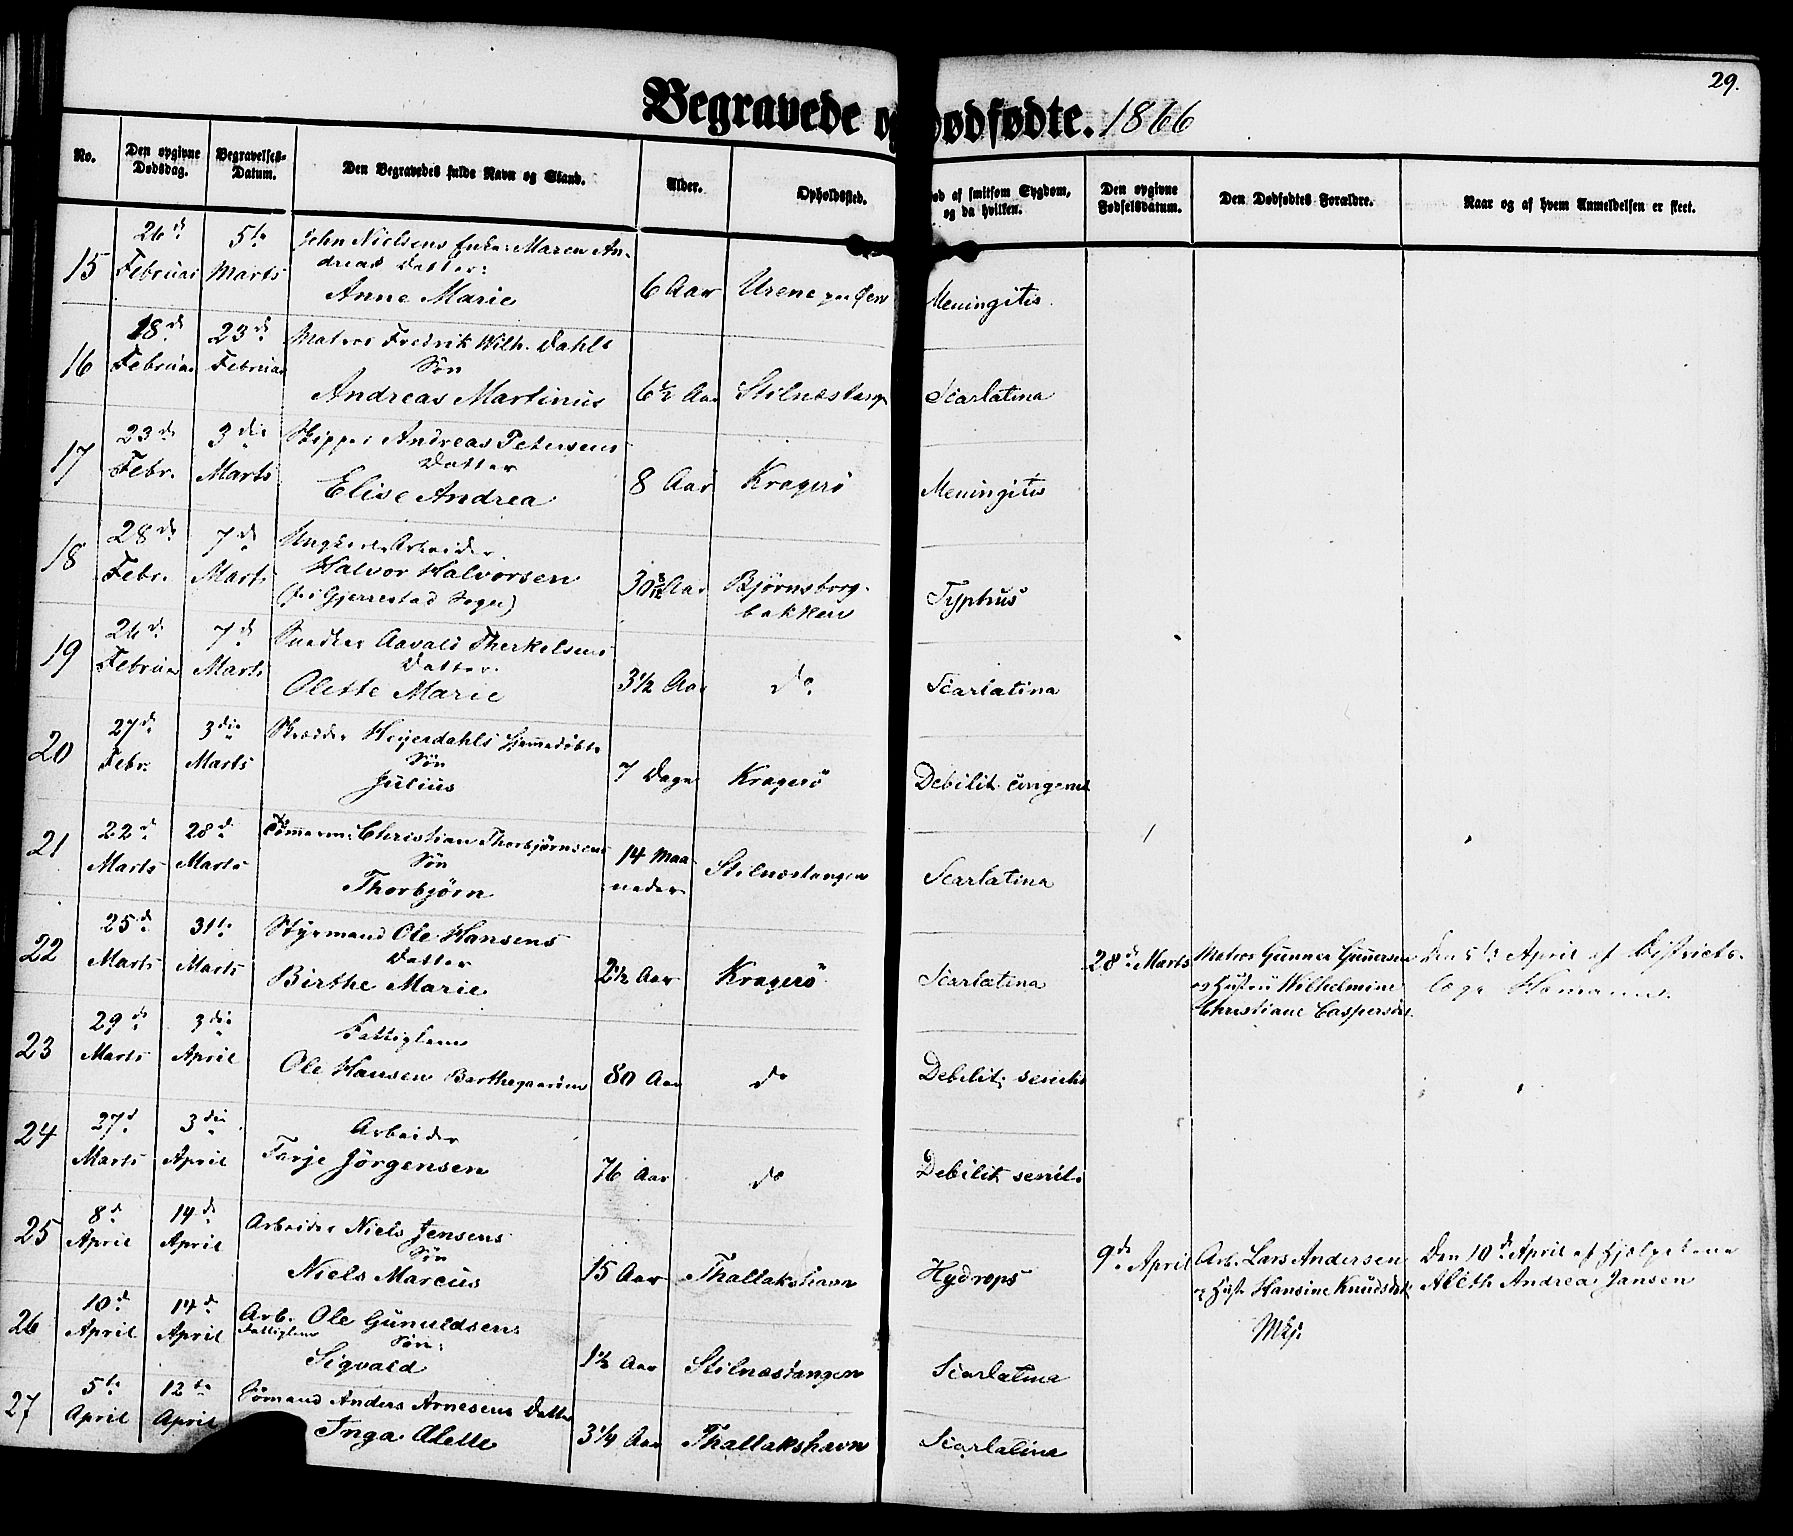 29.
Begravede og Dødfødte. 1866
No.
Den opgivne Dødsdag.
Begravelses-Datum.
Den Begravedes fulde Navn og Stand.
Alder.
Opholdssted.
Død af smitsom Sygdom, og da hvilken.
Den opgivne Fødselsdatum.
Den Dødfødtes Forældre.
Naar og af hvem Anmeldelsen er skeet.
15 26de Februar 5te Marts John Nielsens Enke: Maren Andreas Datter: Anne Marie 6 Aar Urene paa Øen Meningitis.
16 18de Februar 23de Februar Matros Fredrik Wilh. Dahls Søn Andreas Martinius 6½ Aar Stilnæstang Scarlatina
17 23de Febr. 3die Marts Skipper Andreas Petersens Datter Elise Andrea 8 Aar Kragerö Meningitis
18 28de Febr. 7de Marts Ungkarl Arbeider Halvor Halvorsen (fra Gjerrestad Sogn) 30 Aar Björnsborgbakken Typhus
19 26de Februar 7de Marts Snedker Aavald Therkelsens Datter Olette Marie 3½ Aar do Scarlatina
20 27de Febr. 3die Marts Skræder Heyerdahls hjemmedöbte Søn Julius 7 Dage Kragerö Debilit. congenit
21 22de Marts 28de Marts Tømmerm: Christian Thorbjørnsens Søn Thorbjörn 14 Maaneder Stilnæstangen Scarlatina
22 25de Marts 31te Marts Styrmand Ole Hansens Datter Birthe Marie 2½ Aar Kragerö Scarlatina
28de Marts Matros Gunner Gunnersen og Hustru Wilhelmine Christiane Caspersdt. Den 5te April af Districtslæge Homanns.
23 29de Marts 3die April Fattiglem Ole Hansen Barthegaarden 80 Aar do Debilit: senilis
24 27de Marts 3die April Arbeider Tarje Jörgensen 76 Aar do Debilit senilis
25 8de April 14de April Arbeider Niels Jensens Søn Niels Marcus 15 Aar Thallakshavn Hydrops
9de April Arb. Lars Andersen og Hust. Hansine Knudsdt. Den 10de April af Hjelpekone Aleth Andrea Jansen
26 10de April 14de April Arb. Ole Gunuldsens Fattiglem Søn: Sigvald 1½ Aar Stilnæstangen Scarlatina
27 5te April 12te April Sömand Anders Arnesens Datter Inga Alette 3¼ Aar Thallakshavn Scarlatina